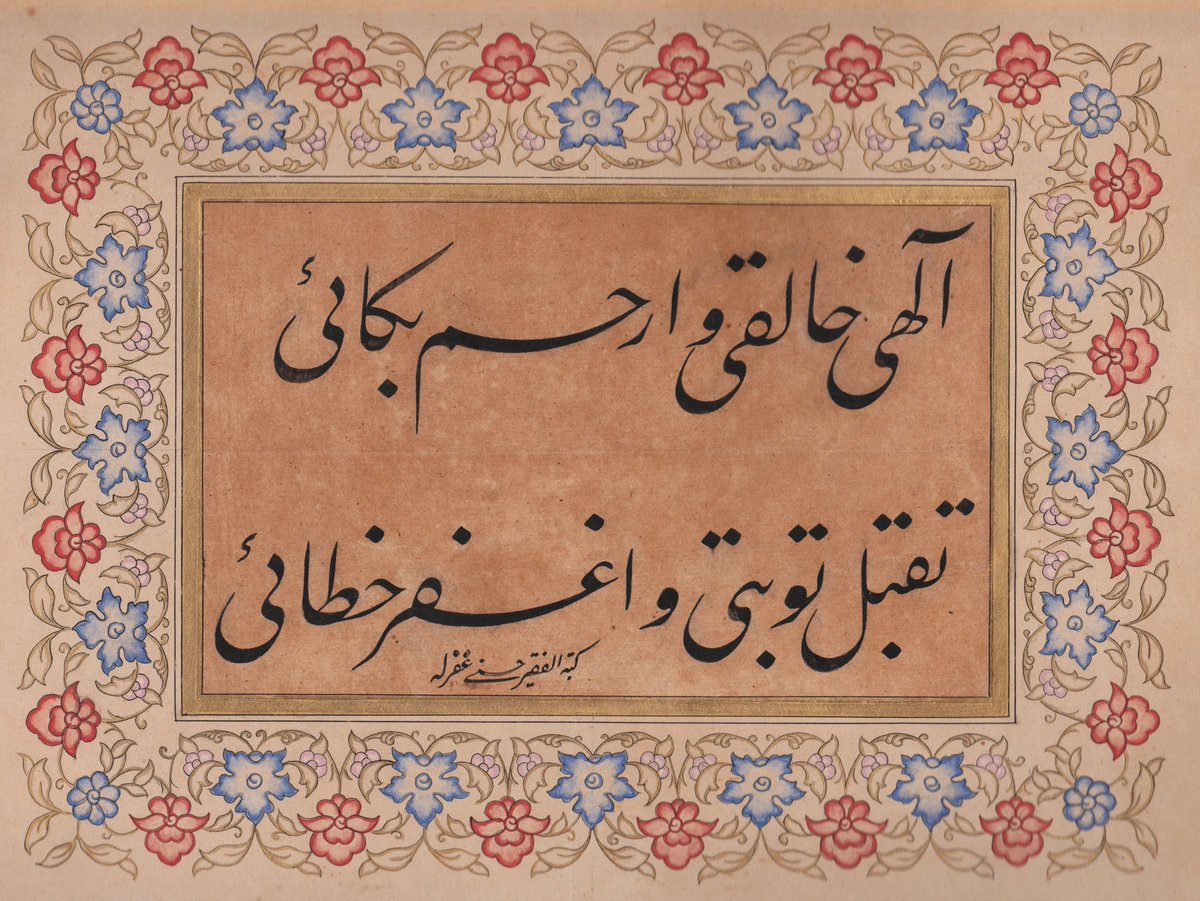 آلهی خالقی و ارحم بکائئ
تقبل توبتی و اغفر خطائئ
کتبه الفقیر حسنی غفرله